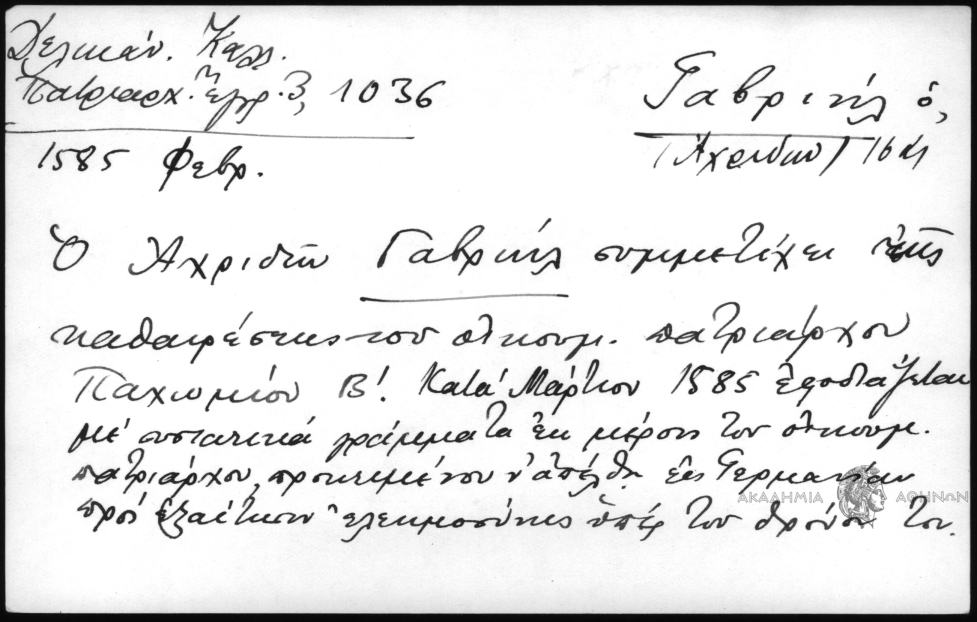 Δελικάν. Καλλ.
Πατριαρχ. Ἔγγρ. 3, 1036
Γαβριήλ ὁ,
(Ἀχριδῶν) 16
1585 Φεβρ.
Ὁ Ἀχριδῶν Γαβριήλ συμμετέχει τῆς
καθαιρέσεως τοῦ οἰκουμ. πατριάρχου
Παχωμίου Β΄. Κατά Μάρτιον 1585 ἐφοδιάζεται
μέ συστατικά γράμματα ἐκ μέρους τοῦ οἰκουμ.
πατριάρχου, προκειμένου ν' ἀπέλθῃ εἰς Γερμανίαν
πρός ἐξαίτησιν ἐλεημοσύνης ὑπέρ τοῦ θρόνου του.
ΑΚΑΔΗΜΙΑ ΑΘΗΝΩΝ